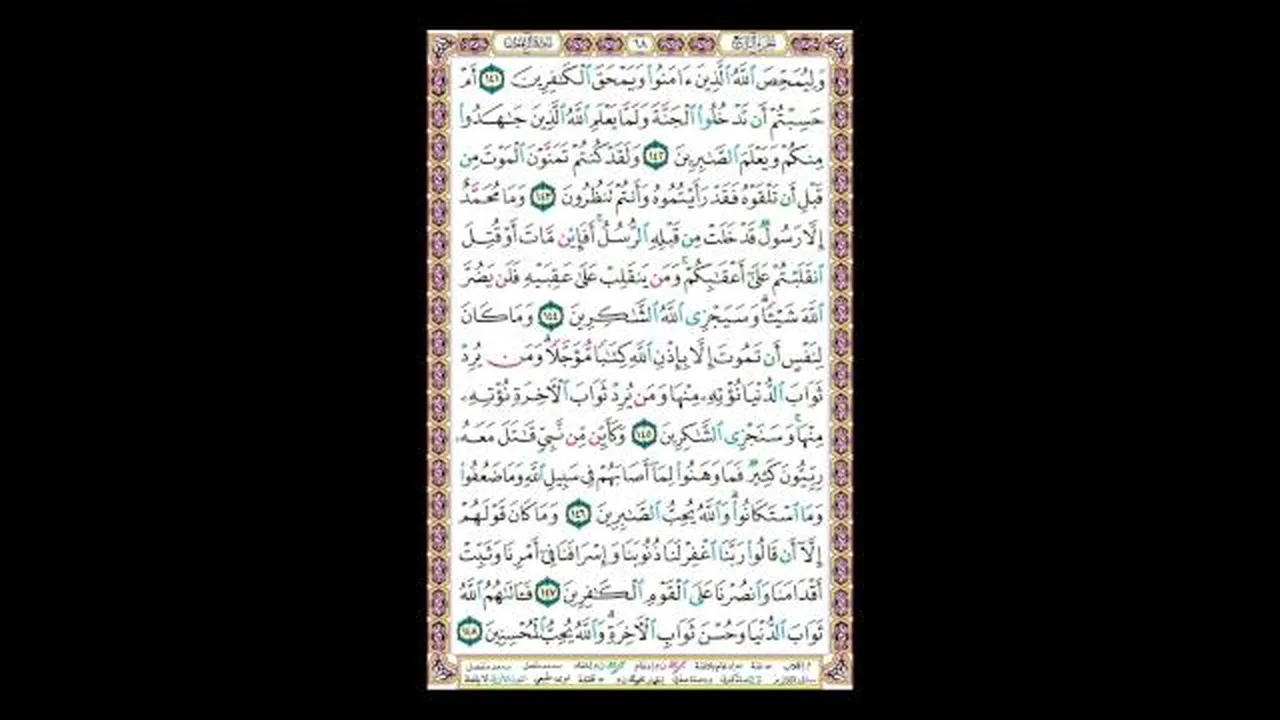 الجزء الرابع ٦٨ سورة آل عمران
وَلِيُمَحِّصَ ٱللَّهُ ٱلَّذِينَ ءَامَنُوا۟ وَيَمْحَقَ ٱلْكَـٰفِرِينَ ١٤١ أَمْ
حَسِبْتُمْ أَن تَدْخُلُوا۟ ٱلْجَنَّةَ وَلَمَّا يَعْلَمِ ٱللَّهُ ٱلَّذِينَ جَـٰهَدُوا۟
مِنكُمْ وَيَعْلَمَ ٱلصَّـٰبِرِينَ ١٤٢ وَلَقَدْ كُنتُمْ تَمَنَّوْنَ ٱلْمَوْتَ مِن
قَبْلِ أَن تَلْقَوْهُ فَقَدْ رَأَيْتُمُوهُ وَأَنتُمْ تَنظُرُونَ ١٤٣ وَمَا مُحَمَّدٌ
إِلَّا رَسُولٌ قَدْ خَلَتْ مِن قَبْلِهِ ٱلرُّسُلُ ۚ أَفَإِي۟ن مَّاتَ أَوْ قُتِلَ
ٱنقَلَبْتُمْ عَلَىٰٓ أَعْقَـٰبِكُمْ ۚ وَمَن يَنقَلِبْ عَلَىٰ عَقِبَيْهِ فَلَن يَضُرَّ
ٱللَّهَ شَيْـًٔا ۗ وَسَيَجْزِى ٱللَّهُ ٱلشَّـٰكِرِينَ ١٤٤ وَمَا كَانَ
لِنَفْسٍ أَن تَمُوتَ إِلَّا بِإِذْنِ ٱللَّهِ كِتَـٰبًا مُّؤَجَّلًا ۗ وَمَن يُرِدْ
ثَوَابَ ٱلدُّنْيَا نُؤْتِهِۦ مِنْهَا وَمَن يُرِدْ ثَوَابَ ٱلْـَٔاخِرَةِ نُؤْتِهِۦ
مِنْهَا ۚ وَسَنَجْزِى ٱلشَّـٰكِرِينَ ١٤٥ وَكَأَيِّن مِّن نَّبِىٍّ قَـٰتَلَ مَعَهُۥ
رِبِّيُّونَ كَثِيرٌ فَمَا وَهَنُوا۟ لِمَآ أَصَابَهُمْ فِى سَبِيلِ ٱللَّهِ وَمَا ضَعُفُوا۟
وَمَا ٱسْتَكَانُوا۟ ۗ وَٱللَّهُ يُحِبُّ ٱلصَّـٰبِرِينَ ١٤٦ وَمَا كَانَ قَوْلَهُمْ
إِلَّآ أَن قَالُوا۟ رَبَّنَا ٱغْفِرْ لَنَا ذُنُوبَنَا وَإِسْرَافَنَا فِىٓ أَمْرِنَا وَثَبِّتْ
أَقْدَامَنَا وَٱنصُرْنَا عَلَى ٱلْقَوْمِ ٱلْكَـٰفِرِينَ ١٤٧ فَـَٔاتَىٰهُمُ ٱللَّهُ
ثَوَابَ ٱلدُّنْيَا وَحُسْنَ ثَوَابِ ٱلْـَٔاخِرَةِ ۗ وَٱللَّهُ يُحِبُّ ٱلْمُحْسِنِينَ ١٤٨